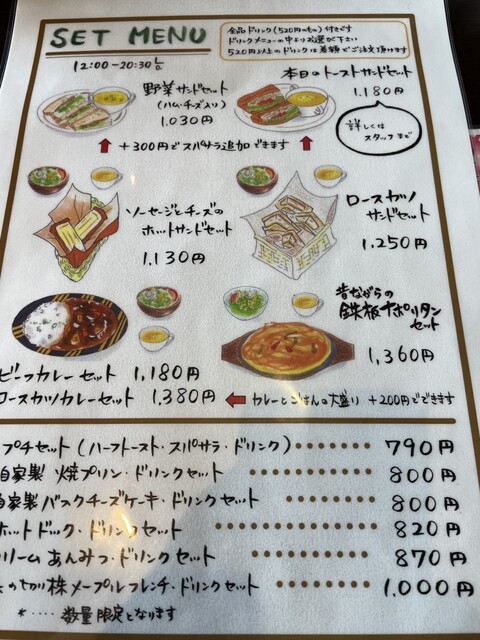 SET MENU
12:00-20:30 L.o.
全品ドリンク(520円のもの)付きです
ドリンクメニューの中よりお選び下さい
520円以上のドリンクは差額でご注文頂けます
野菜サンドセット
(ハム・チーズ入り)
1.030円
本日のトーストサンドセット
1.180円
詳しくは
スタッフまで
+300円でスパサラ追加できます
ソーセージとチーズの
ホットサンドセット
1.130円
ロースカツ
サンドセット
1.250円
昔ながらの
鉄板ナポリタン
セット
1,360円
ビーフカレーセット 1,180円
ロースカツカレーセット 1,380円
カレーとごはんの大盛り +200円でできます
プチセット(ハーフトースト・スパサラ・ドリンク) 790円
自家製 焼プリン・ドリンクセット 800円
自家製バスクチーズケーキ・ドリンクセット 800円
ホットドック・ドリンクセット 820円
リームあんみつ・ドリンクセット 870円
切り株メープルフレンチ・ドリンクセット 1.000円
*‥‥数量限定となります